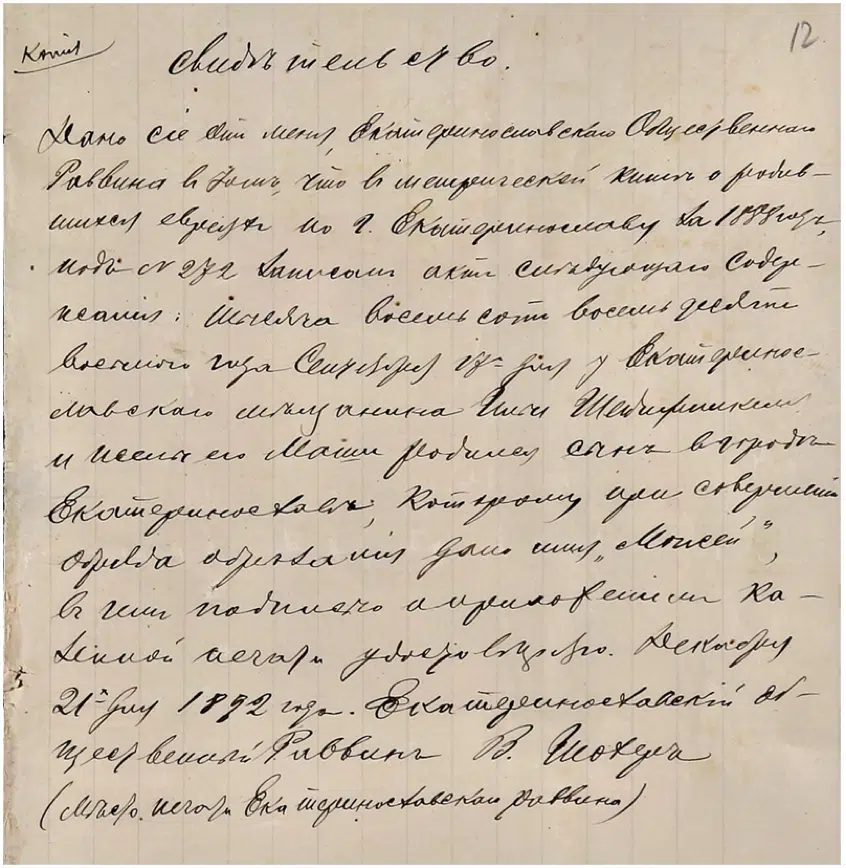 Копія
12
Свидѣтельство.
Дано сіе отъ меня, Екатеринославскаго Общественнаго
Раввина въ томъ, что въ метрической книгѣ о родив-
шихся евреяхъ по г. Екатеринославу за 1888 годъ,
подъ № 272 записанъ актъ слѣдующаго содер-
жанія: Тысяча восемьсотъ восемьдесятъ
восьмого года Сентября дня у Екатеринос-
лавскаго мѣщанина
и жены его Маши родился сынъ въ городѣ
Екатеринославѣ, которому при совершеніи
обряда обрѣзанія дано имя „Моисей",
въ чемъ подписью и приложеніемъ ка-
зенной печати удостовѣряю. Декабря
21го дня 1892 года. Екатеринославскій об-
щественный Раввинъ В. Шохеръ
(Мѣсто печати Екатеринославскаго раввина)